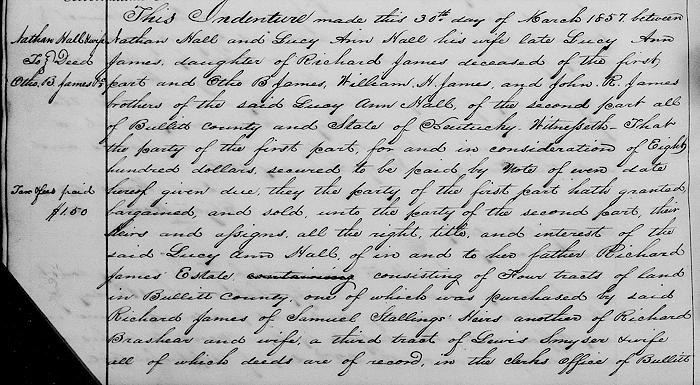 This Indenture made this 30th day of March 1857 between
Nathan Hall & wife
To } Deed
Otho. B. James &c
Nathan Hall and Lucy Ann Hall his wife late Lucy Ann
James, daughter of Richard James deceased of the first
part and Otho B James, William, H. James, and John. R. James
brothers of the said Lucy Ann Hall, of the second part all
of Bullitt County and State of Kentucky. Witnesseth- That
the party of the first part, for and in consideration of Eight
hundred dollars, secured to be paid by Note of even date
Tax fees paid
$1.50
hereof given due, they the party of the first part hath granted
bargained, and sold, unto the party of the second part, their
heirs and assigns, all the right, title, and interest of the
said Lucy Ann Hall, of in and to her father Richard
James Estate, containing consisting of Four tracts of land
in Bullitt County, one of which was purchased by said
Richard James of Samuel Stallings' Heirs another of Richard
Brashear and wife, a third tract of Lewis Smyser & wife
all of which deeds are of record, in the clerks Office of Bullitt